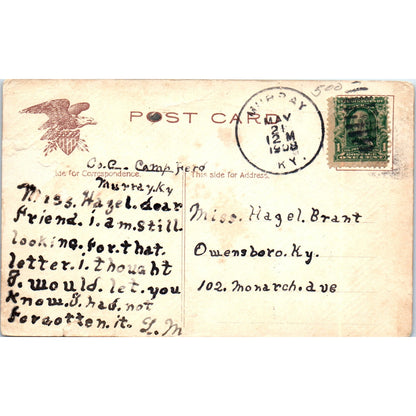 500
POST CARD
MURRAY
MAY
21
12 M
1908
KY.
1
Co. C. Camp
Murray. Ky
ide for Correspondence.
This side for Address.
Miss. Hazel. dear
friend. i. am. still.
looking. for. that.
letter. i. thought
I. would. let. you
know. I. had. not
forgotten. it. L. M
Miss. Hazel. Brant
Owensboro. Ky.
102. monarch. ave